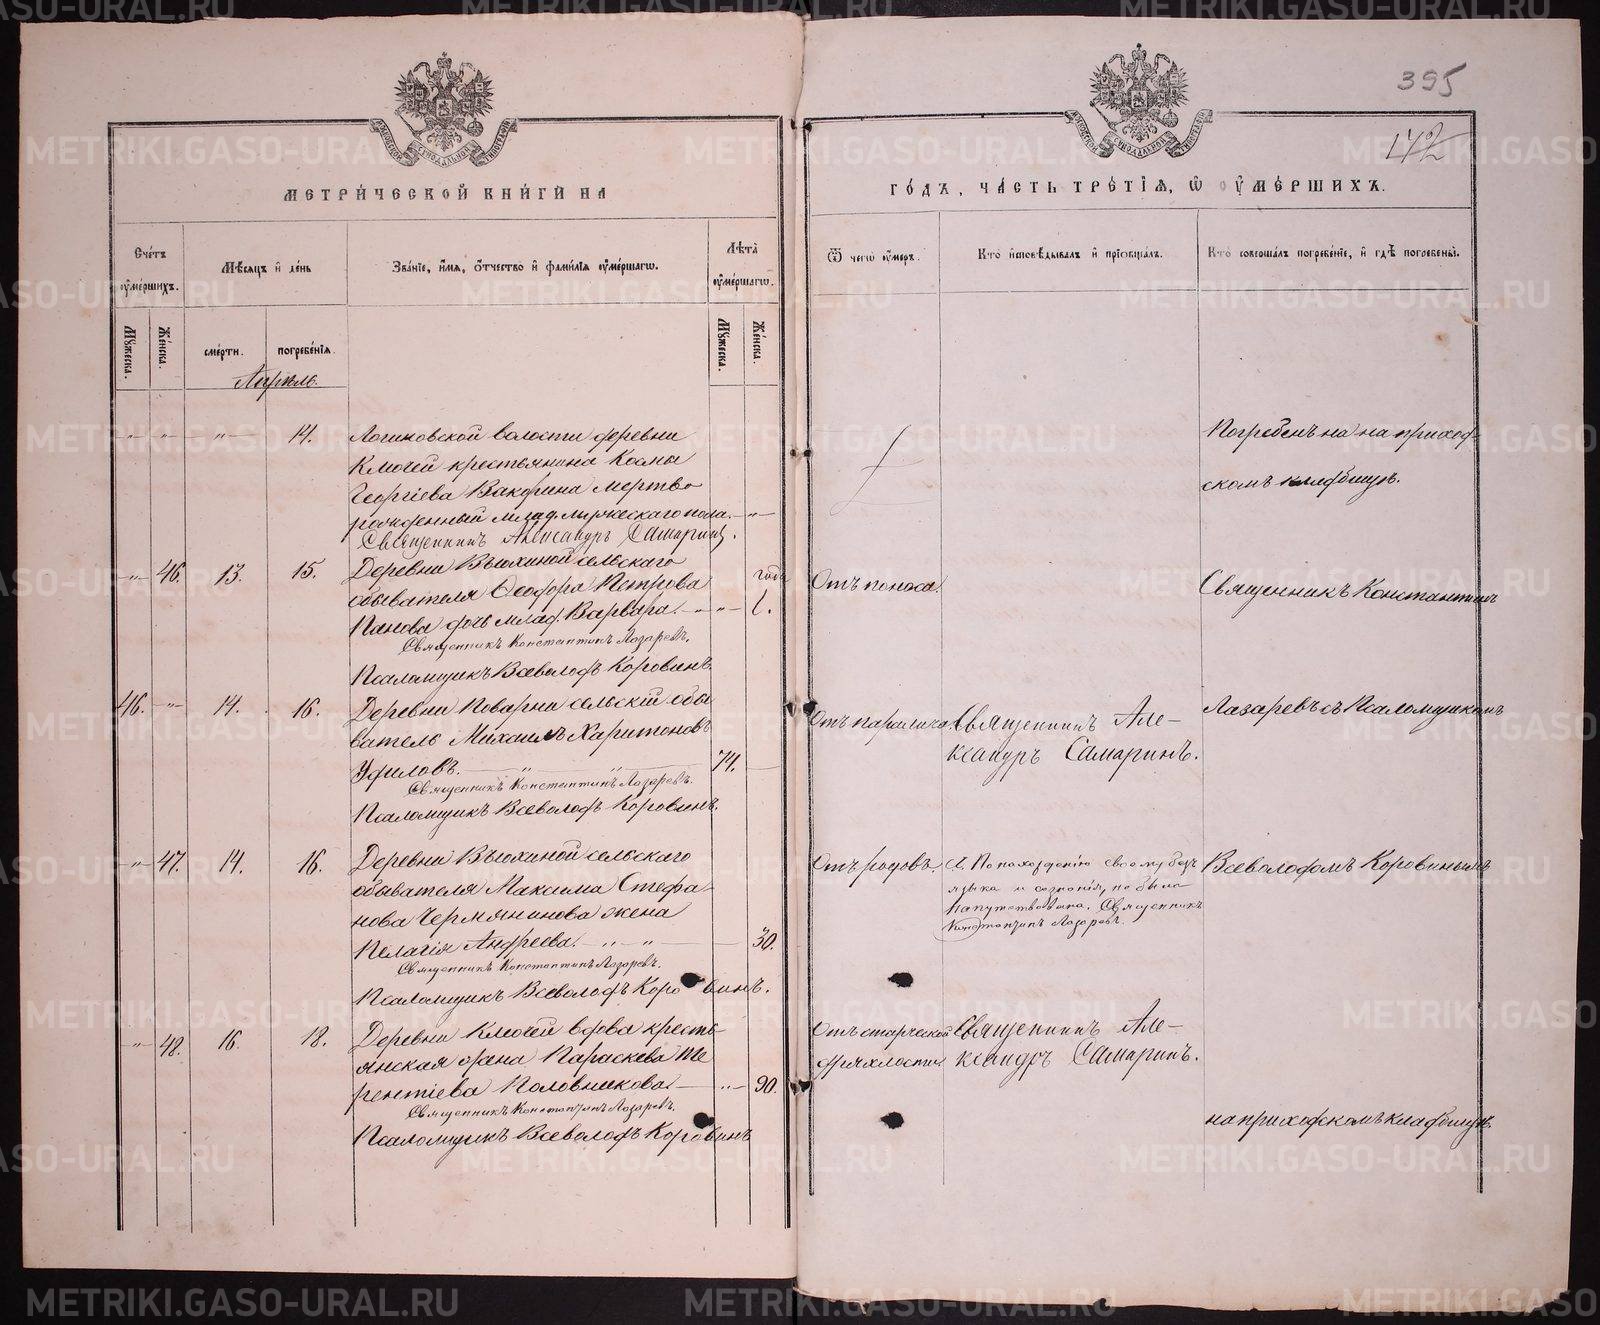 395
142
МЕТРИ́ЧЕСКОЙ КНИ́ГИ НА
ГО́ДЪ, ЧА́СТЬ ТРЕ́ТІѦ, Ѡ ОУ҆МЕ́РШИХЪ.
Сче́тъ
ᲂу҆ме́ршихъ.
Мѣ́сѧцъ и҆ де́нь
Зва́нїе, и҆́мѧ, ѻ҆́тчество и҆ фами́лїѧ ᲂу҆ме́ршагѡ.
Лѣ́та
ᲂу҆ме́ршагѡ.
Ѿ чегѡ̀ ᲂу҆́меръ.
Кто̀ и҆сповѣ́дывалъ и҆ прїѡбща́лъ.
Кто̀ соверша́лъ погребе́нїе, и҆ гдѣ̀ погребены̀.
Мꙋ́жеска.
Же́нска.
сме́рти.
погребе́нїѧ.
Мꙋ́жеска.
Же́нска.
Апрѣль.
-"- -"- -"- 14.
Логиновской волости деревни
Ключей крестьянина Космы
Георгіева Вакорина мертво
рожденный млад. мужескаго пола. -"-
Священникъ Александръ Самаринъ.
Погребенъ на на приход-
скомъ кладбищѣ.
-"- 46. 13. 15.
Деревни Вьюхиной сельскаго
обывателя Ѳеодора Петрова
Панова дочь млад. Варвара. -"-
года
1.
Священникъ Константинъ Лазаревъ.
Псаломщикъ Всеволодъ Коровинъ.
Отъ поноса.
Священникъ Константинъ
46. -"- 14. 16.
Деревни Поварни сельскій обы
ватель Михаилъ Харитоновъ
Уфиловъ. -"- -"- 74.
Священникъ Константинъ Лазаревъ.
Псаломщикъ Всеволодъ Коровинъ.
Отъ паралича.
Священникъ Але-
ксандръ Самаринъ.
Лазаревъ съ Псаломщикомъ
-"- 47. 14. 16.
Деревни Вьюхиной сельскаго
обывателя Максима Стефа-
нова Чермянинова жена
Пелагія Андреева. -"- -"- 30.
Священникъ Константинъ Лазаревъ.
Псаломщикъ Всеволодъ Коровинъ.
Отъ родовъ.
По нахожденію своему безъ
языка и сознанія, не была
напутствована. Священникъ
Константинъ Лазаревъ.
Всеволодомъ Коровинымъ
-"- 48. 16. 18.
Деревни Ключей вдова кресть-
янская Параскева Те
рентіева Половникова -"- 90.
Священникъ Константинъ Лазаревъ.
Псаломщикъ Всеволодъ Коровинъ
Отъ старческой
дряхлости
Священникъ Але-
ксандръ Самаринъ.
на приходскомъ кладбищѣ.
METRIKI.GASO-URAL.RU